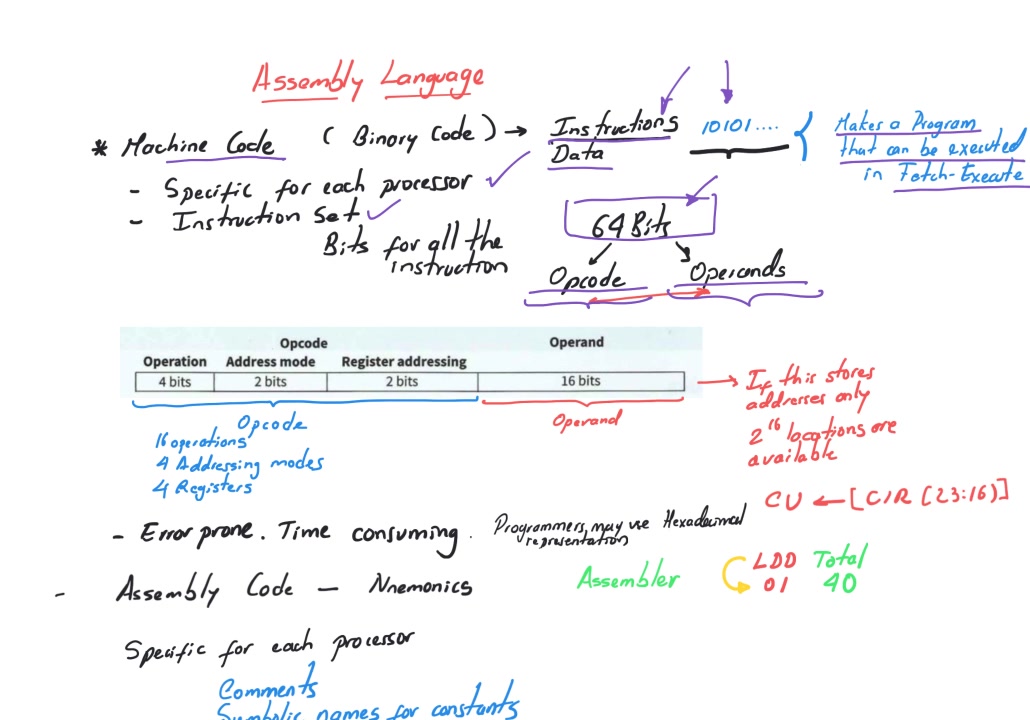 Assembly Language
* Machine Code ( Binary Code ) → Instructions 10101....
Data
Makes a Program
that can be executed
in Fetch-Execute
- Specific for each processor
- Instruction Set
Bits for all the
instruction
64 Bits
Opcode Operands
Opcode Operand
Operation Address mode Register addressing
4 bits 2 bits 2 bits 16 bits
→ If this stores
addresses only
2^16 locations are
available
Opcode
16 operations
4 Addressing modes
4 Registers
Operand
CU ← [CIR (23:16)]
- Error prone. Time consuming. Programmers may use Hexadecimal
representation
- Assembly Code - Nnemonics
Assembler
LDD Total
01 40
Specific for each processor
Comments
Symbolic names for constants